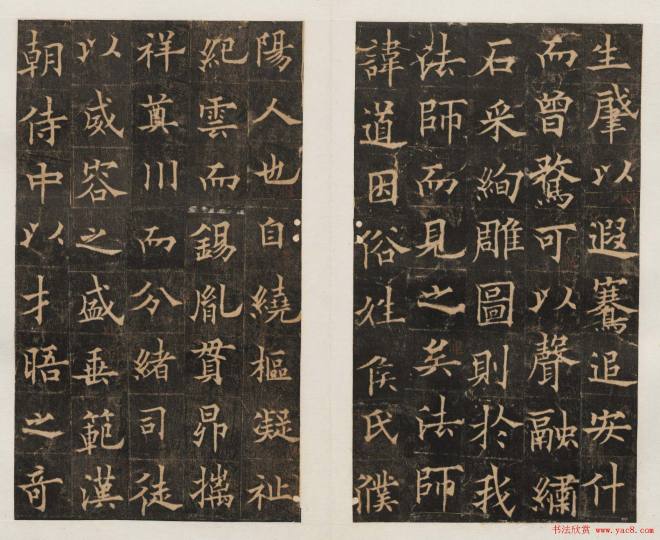 生肇以遐騫追安什
而曾騖可以聲融繡
石采絢雕圖則於我
法師而見之矣法師
諱道因俗姓侯氏濮
陽人也自繞樞凝祉
紀雲而錫胤貫昴摛
祥奠川而分緒司徒
以威容之盛垂範漢
朝侍中以才晤之奇
书法欣赏 www.yac8.com